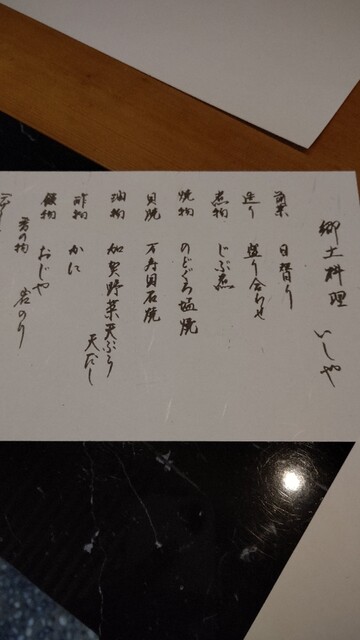 郷土料理 いしや
前菜 日替り
造り 盛り合わせ
煮物 じぶ煮
焼物 のどぐろ塩焼
貝焼 万寿貝石焼
油物 加賀野菜天ぷら
天だし
酢物 かに
飯物 おじや
岩のり